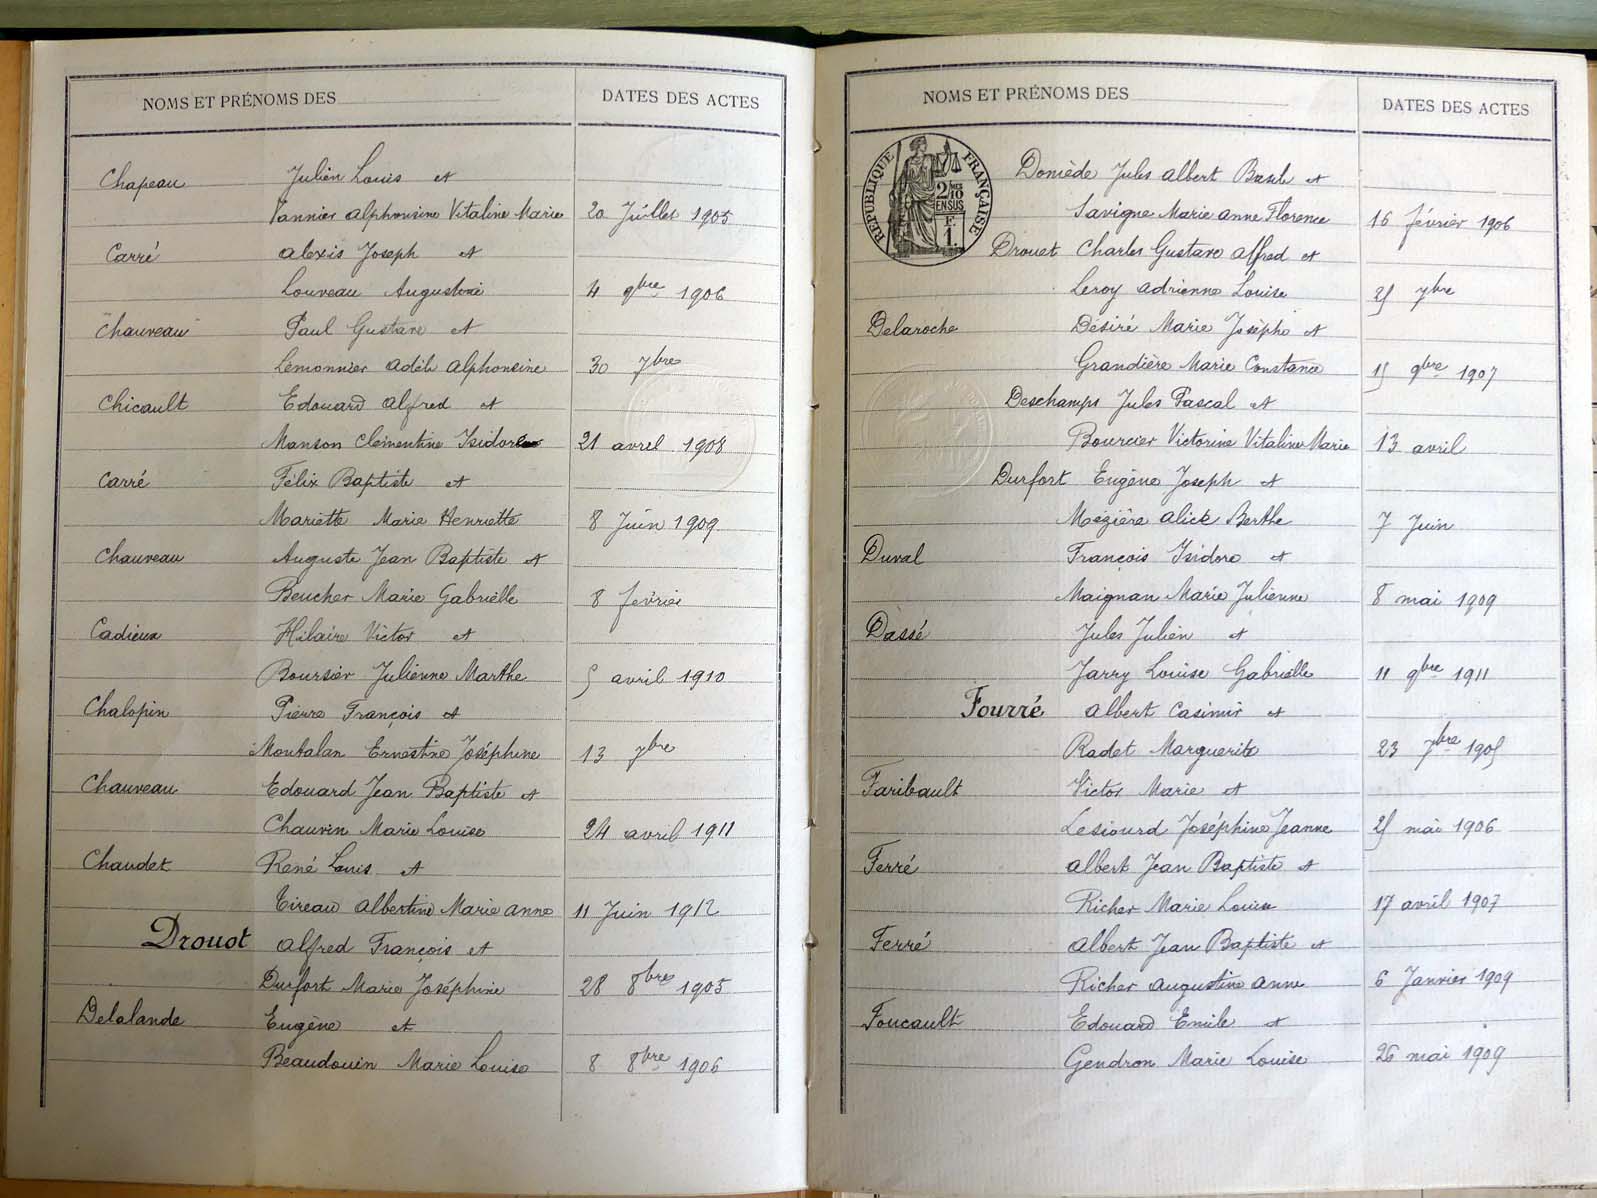 NOMS ET PRÉNOMS DES
DATES DES ACTES
Chapeau Julien Louis et
Vannier Alphonsine Vitaline Marie 20 Juillet 1905
Carré Alexis Joseph et
Louveau Augustine 4 9bre 1906
"Chauveau" Paul Gustave et
Lemonnier Adèle Alphonsine 30 7bre
Chicault Edouard Alfred et
Manson Clémentine Isidore 21 avril 1908
Carré Félix Baptiste et
Mariette Marie Henriette 8 Juin 1909
Chauveau Auguste Jean Baptiste et
Beucher Marie Gabrielle 8 février
Cadieux Hilaire Victor et
Boursier Julienne Marthe 5 avril 1910
Chalopin Pierre François et
Ernestine Joséphine 13 7bre
Chauveau Edouard Jean Baptiste et
Chauvin Marie Louise 24 avril 1911
Chaudet René Louis et
Tireau Albertine Marie Anne 11 Juin 1912
Drouot Alfred François et
Durfort Marie Joséphine 28 8bre 1905
Delalande Eugène et
Beaudouin Marie Louise 8 8bre 1906
NOMS ET PRÉNOMS DES
DATES DES ACTES
RÉPUBLIQUE FRANÇAISE
2/10
EN SUS
F.
1.
Domède Jules Albert Basile et
Savigne Marie Anne Florence 16 février 1906
Drouet Charles Gustave Alfred et
Leroy Adrienne Louise 25 7bre
Delaroche Désiré Marie Josèphe et
Grandière Marie Constance 15 9bre 1907
Deschamps Jules Pascal et
Bourcier Victorine Vitaline Marie 13 avril
Durfort Eugène Joseph et
Mézière Alice Berthe 7 Juin
Duval François Isidore et
Maignan Marie Julienne 8 mai 1909
Dassé Jules Julien et
Jarry Louise Gabrielle 11 9bre 1911
Fourré Albert Casimir et
Radet Marguerite 23 7bre 1905
Faribault Victor Marie et
Lesiourd Joséphine Jeanne 25 mai 1906
Ferré Albert Jean Baptiste et
Richer Marie Louise 17 avril 1907
Ferré Albert Jean Baptiste et
Richer Augustine Anne 6 Janvier 1909
Foucault Edouard Emile et
Gendron Marie Louise 26 mai 1909